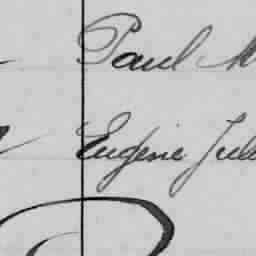 Paul M
Eugène Jule